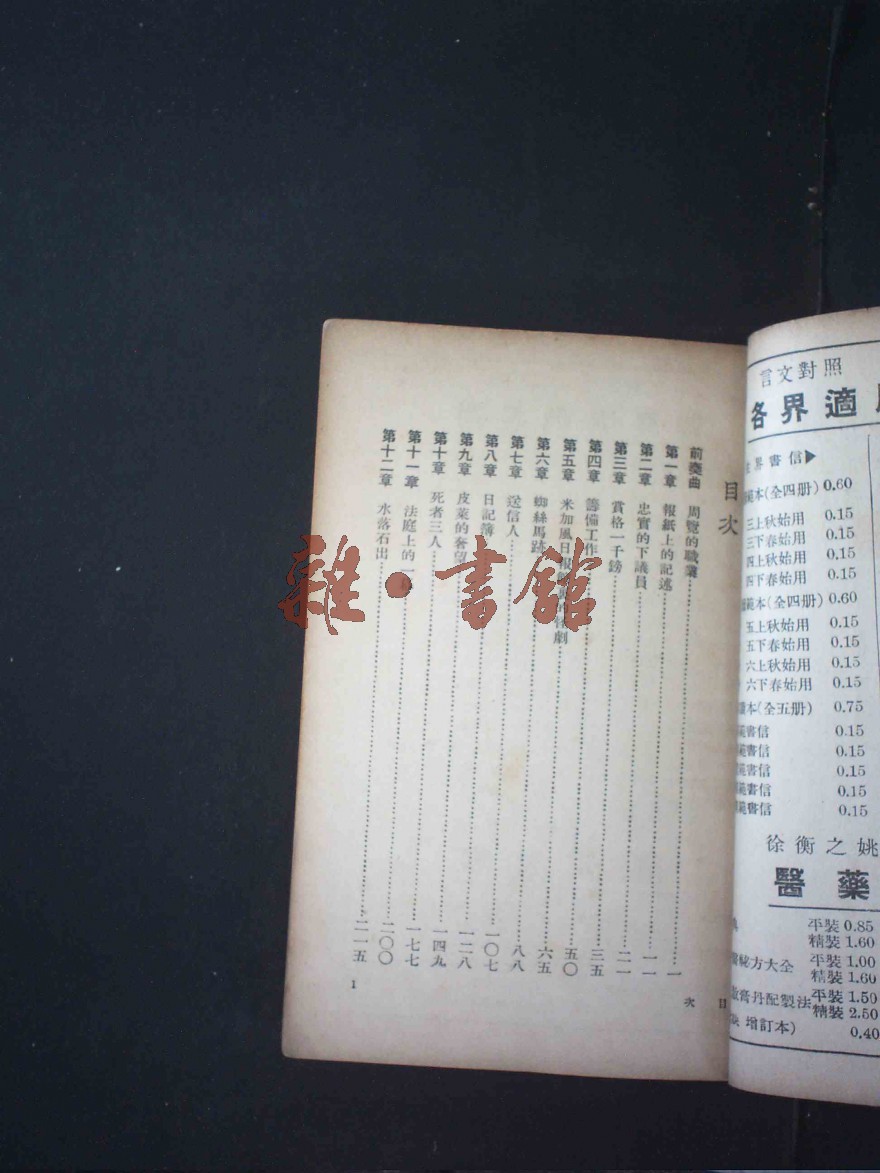 目次
前奏曲　周覽的職業……一
第一章　報紙上的記述……一一
第二章　忠實的下議員……二一
第三章　賞格一千鎊……三五
第四章　籌備工作
第五章　米加風日報 劇……五〇
第六章　蜘絲馬跡……六五
第七章　送信人……八八
第八章　日記簿……一〇七
第九章　皮萊的奢望……一二八
第十章　死者三人……一四九
第十一章　法庭上的一……一七七
第十二章　水落石出……二〇〇
二一五
目 次
1
雜·書館
言文對照
各界適
界書信▶
範本(全四册) 0.60
三上秋始用 0.15
三下春始用 0.15
四上秋始用 0.15
四下春始用 0.15
範本(全四册) 0.60
五上秋始用 0.15
五下春始用 0.15
六上秋始用 0.15
六下春始用 0.15
本(全五册) 0.75
範書信 0.15
範書信 0.15
範書信 0.15
範書信 0.15
範書信 0.15
徐衡之姚
醫藥
平裝 0.85
精裝 1.60
秘方大全 平裝 1.00
精裝 1.60
膏丹配製法 平裝 1.50
精裝 2.50
增訂本) 0.40